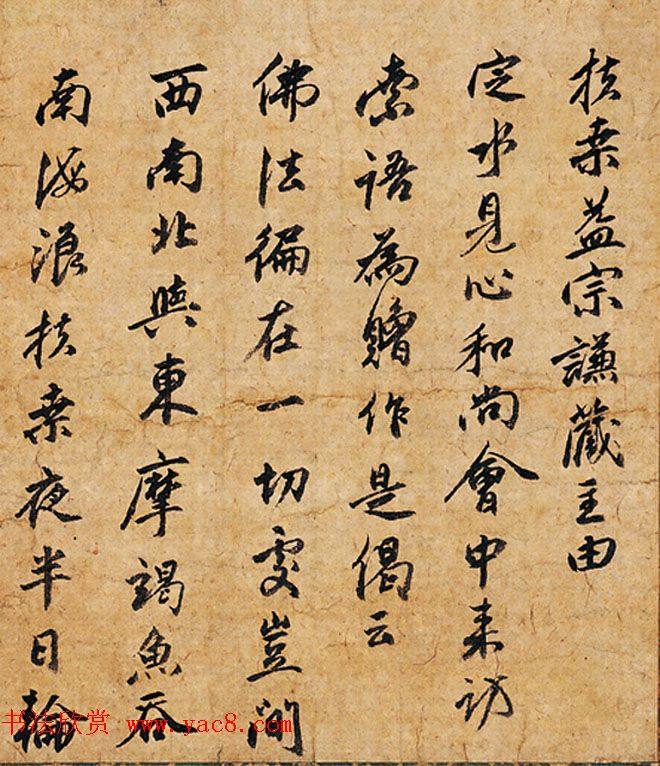 扶桒益宗謙藏主由
定水見心和尚會中来訪
索語為贈作是偈云
佛法徧在一切处豈间
西南北與東摩竭魚吞
南海浪扶桒夜半日輪
书法欣赏 www.yac8.com